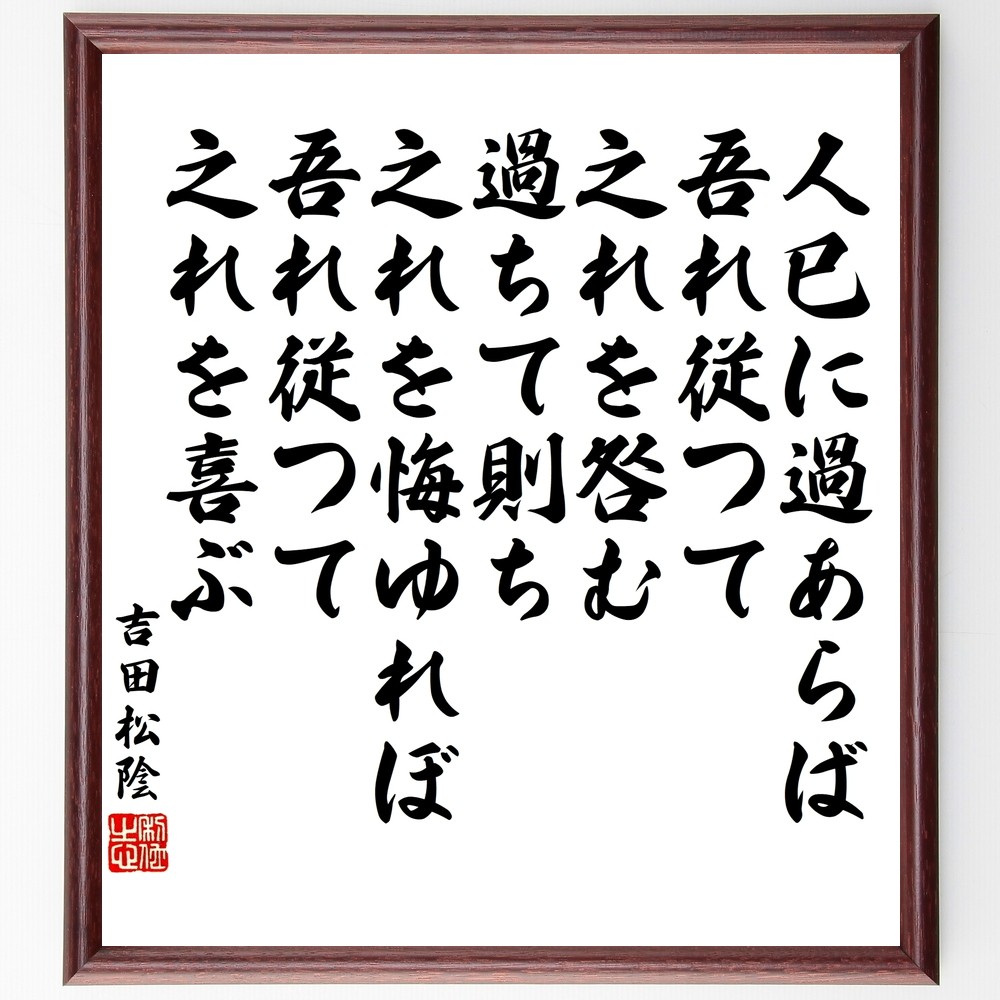 人已に過あらば
吾れ従つて
之れを咎む
過ちて則ち
之れを悔ゆれぼ
吾れ従つて
之れを喜ぶ
吉田松陰